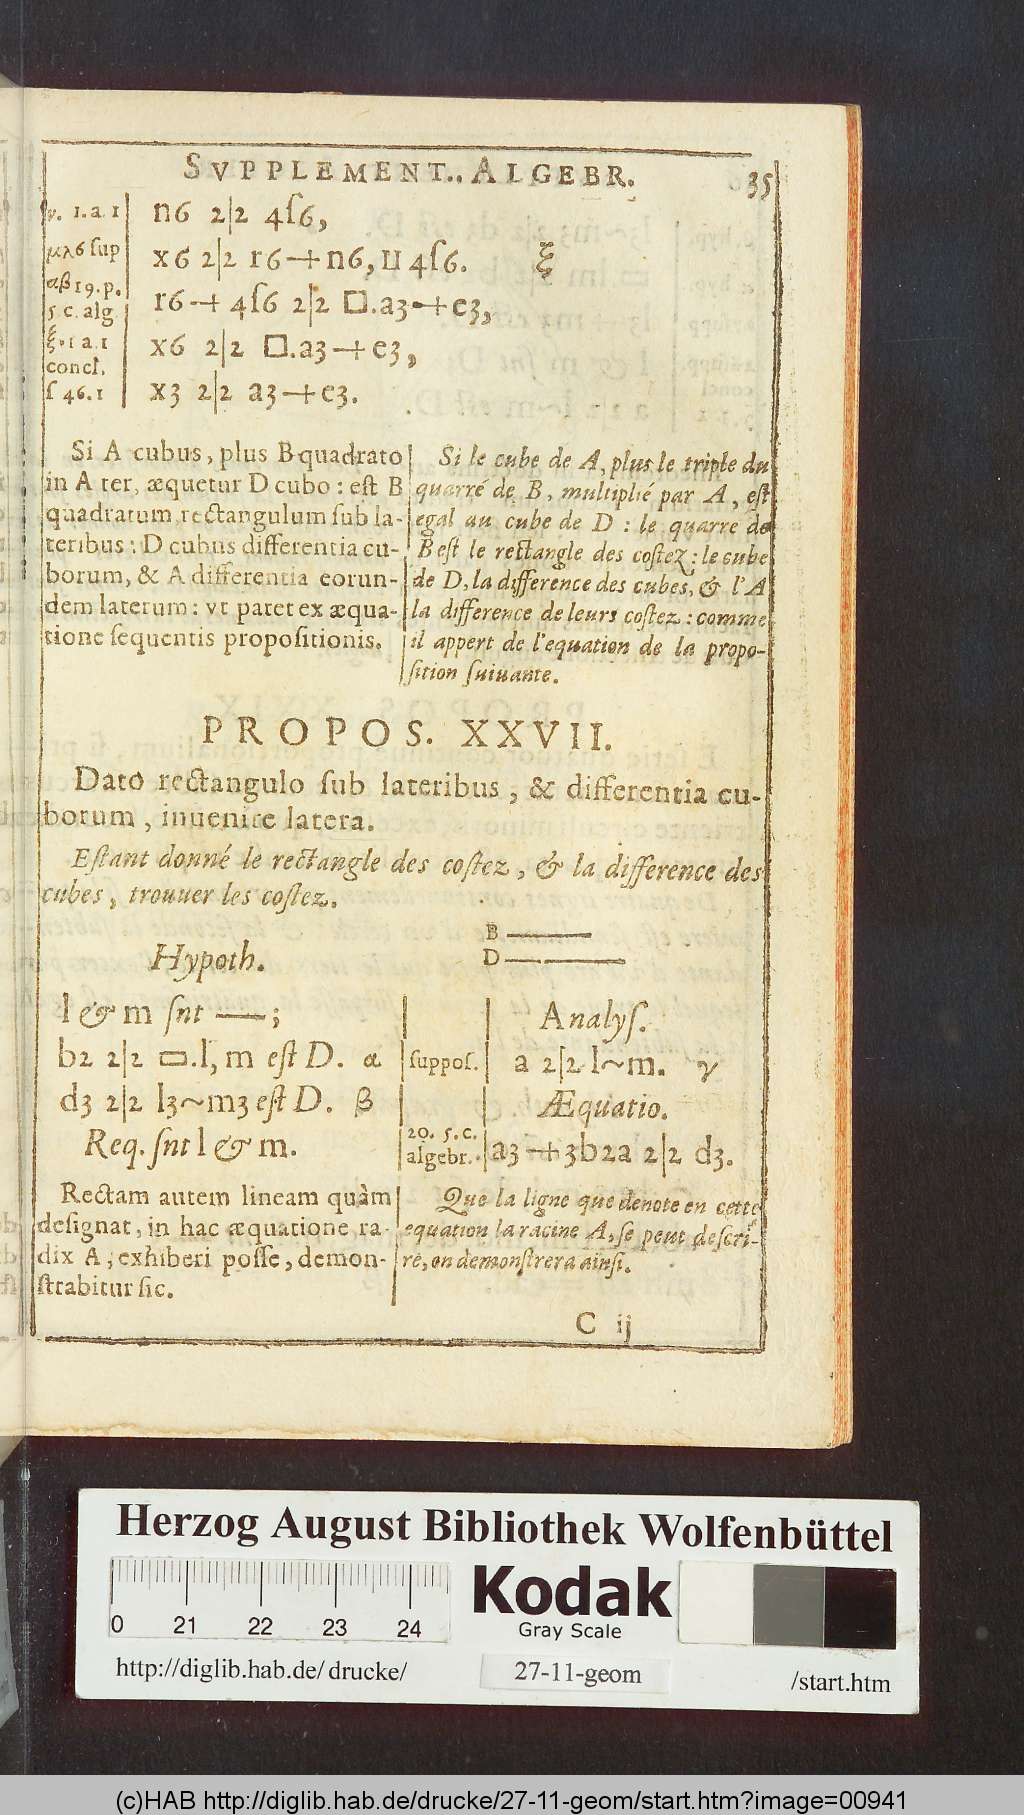 SVPPLEMENT., ALGEBR. 35
v. 1. a 1 n6 2|2 4ſ6,
μλ6 ſup x6 2|2 r6+n6, II 4ſ6. ξ
αβ 19. p. r6+4ſ6 2|2 □.a3+e3,
5. c. alg
ξ. 1 a. 1 x6 2|2 □.a3+e3,
concl.
ſ 46. 1 x3 2|2 a3+e3.
Si A cubus, plus B quadrato
in A ter, æquetur D cubo : eſt B
quadratum rectangulum ſub la-
teribus : D cubus differentia cu-
borum, & A differentia eorun-
dem laterum : vt patet ex æqua-
tione ſequentis propoſitionis.
Si le cube de A, plus le triple du
quarré de B, multiplié par A, eſt
egal au cube de D : le quarre de
B eſt le rectangle des coſtez : le cube
de D, la difference des cubes, & l'A
la difference de leurs coſtez : comme
il appert de l'equation de la propo-
ſition ſuiuante.
PROPOS. XXVII.
Dato rectangulo ſub lateribus, & differentia cu-
borum, inuenire latera.
Eſtant donné le rectangle des coſtez, & la difference des
cubes, trouuer les coſtez.
B ———
D ———
Hypoth.
l & m ſnt ——;
b2 2|2 ▭.l, m eſt D. α
d3 2|2 l3~m3 eſt D. β
Req. ſnt l & m.
Analyſ.
ſuppoſ. a 2|2 l~m. γ
Æquatio.
20. 5. c.
algebr. a3+3b2a 2|2 d3.
Rectam autem lineam quàm
deſignat, in hac æquatione ra-
dix A, exhiberi poſſe, demon-
ſtrabitur ſic.
Que la ligne que denote en cette
equation la racine A, ſe peut deſcri-
re, on demonſtrera ainſi.
C ij
Herzog August Bibliothek Wolfenbüttel
0 21 22 23 24
Kodak
Gray Scale
http://diglib.hab.de/drucke/ 27-11-geom /start.htm
(c)HAB http://diglib.hab.de/drucke/27-11-geom/start.htm?image=00941